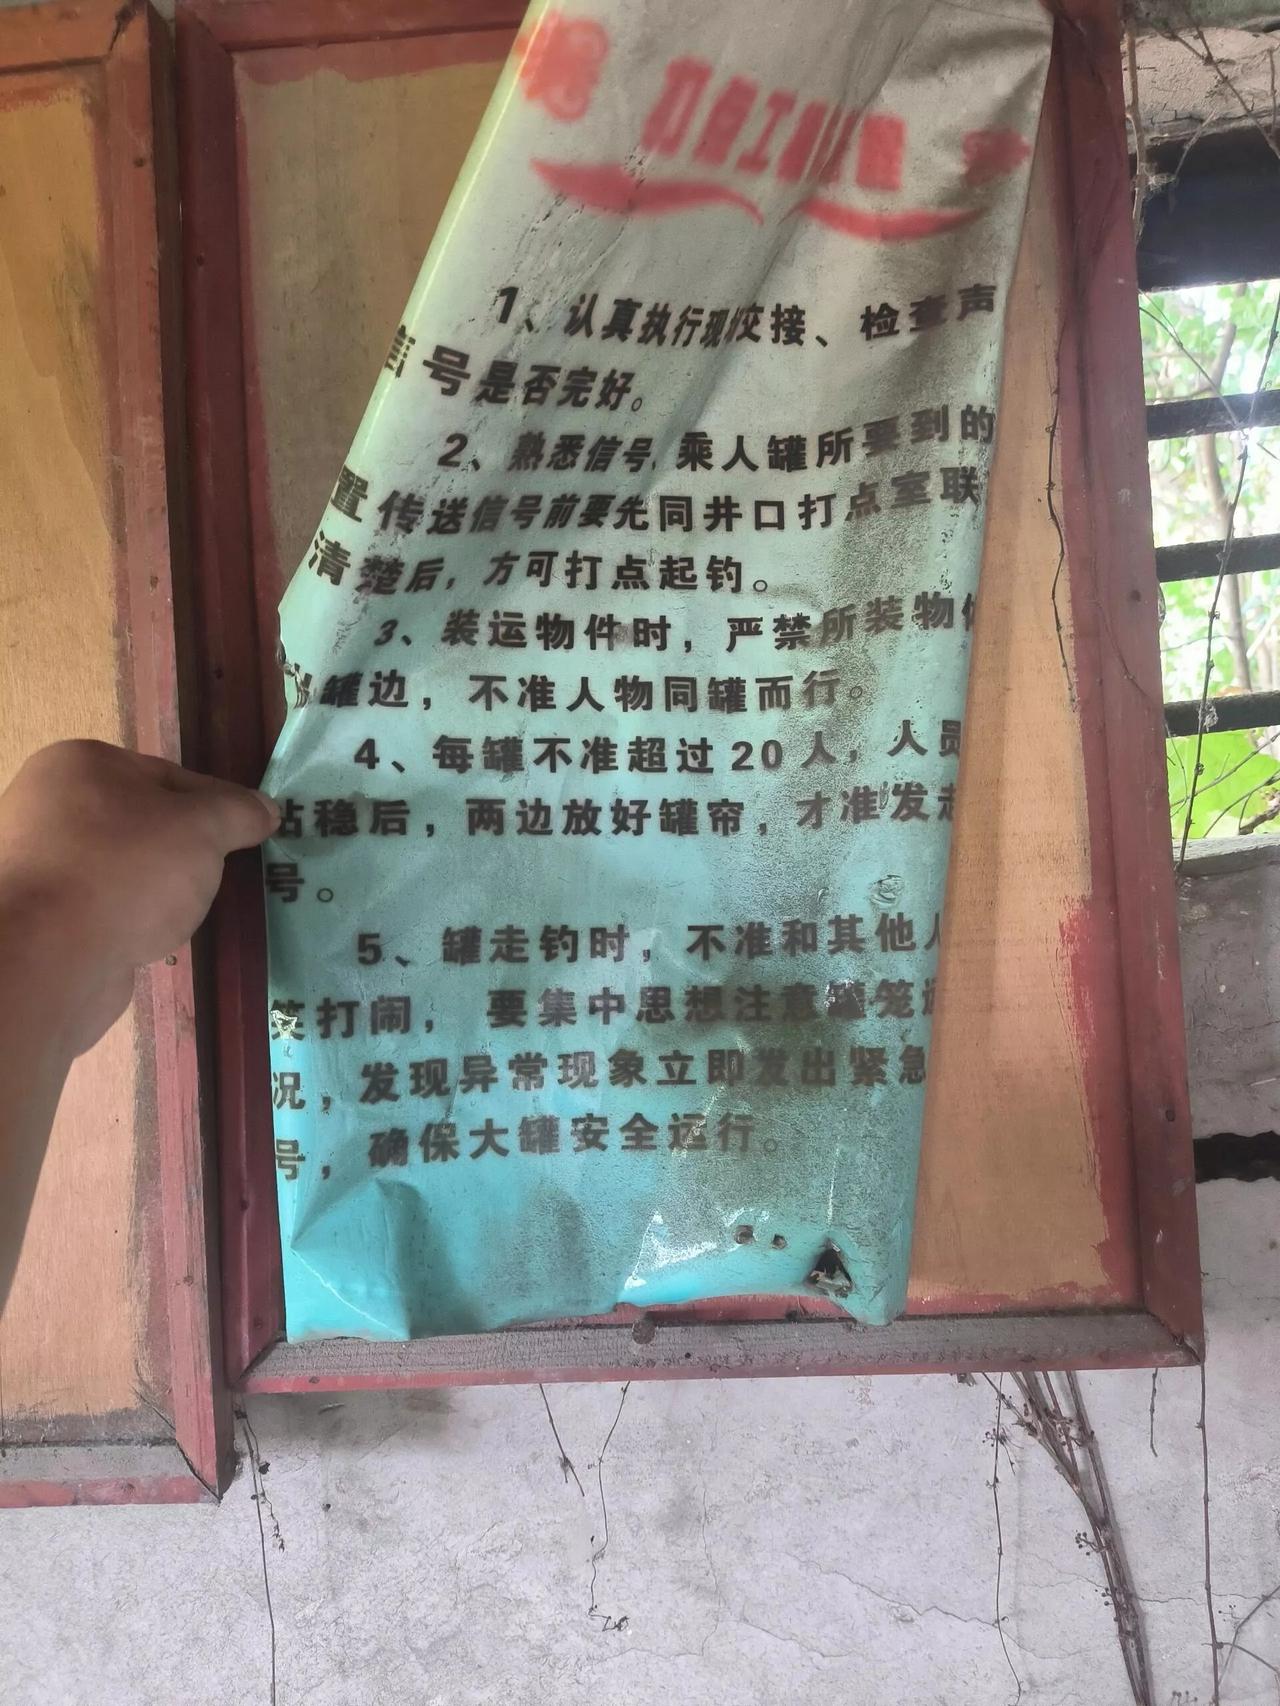 1、认真执行现场交接、检查声
信号是否完好。
2、熟悉信号,乘人罐所要到的
置传送信号前要先同井口打点室联
清楚后，方可打点起钓。
3、装运物件时，严禁所装物件
罐边，不准人物同罐而行。
4、每罐不准超过20人，人员
站稳后，两边放好罐帘，才准发起
号。
5、罐走钓时，不准和其他人
笑打闹，要集中思想注意罐笼运
况，发现异常现象立即发出紧急
号，确保大罐安全运行。